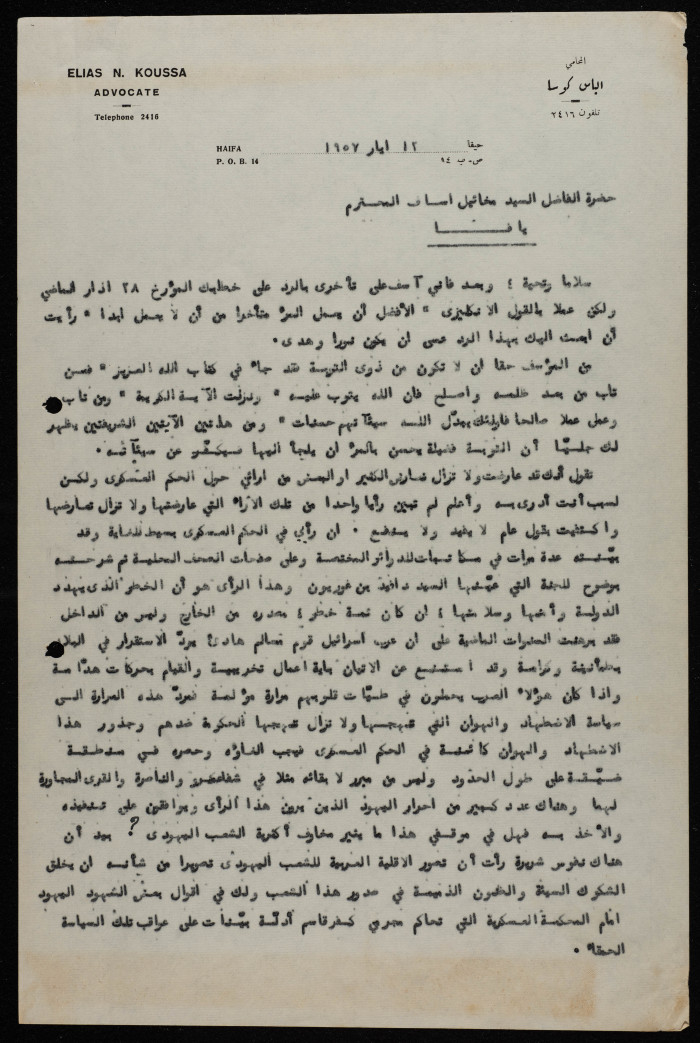 ELIAS N. KOUSSA
ADVOCATE
Telephone 2416
المحامي
الياس كوسا
تلفون ٢٤١٦
HAIFA ١٢ ايار ١٩٥٧ حيفا
P. O. B. 14 ص.ب ١٤
حضرة الفاضل السيد مخائيل اساف المحترم
يافا
سلاما وتحية ؛ وبعد فاني آسف على تأخرى بالرد على خطابك المؤرخ ٢٨ اذار الماضي
ولكن عملا بالقول الانكليزى " الأفضل أن يعمل المرء متأخرا من أن لا يعمل ابدا " رأيت
أن ابعث اليك بهذا الرد عسى ان يكون نورا وهدى.
من المؤسف حقا ان لا تكون من ذوى التوبة فقد جاء في كتاب الله العزيز " فمن
تاب من بعد ظلمه واصلح فان الله يتوب عليه " الآية الكريمة " ومن تاب
وعمل عملا صالحا فاولئك يبدّل الله سيئآتهم حسنات " ومن هاتين الآيتين الشريفتين يظهر
لك جليّا أن التوبة فضيلة يحسن بالمرء ان يلجأ اليها فيكفّر عن سيئآته.
تقول أنك قد عارضت ولا تزال تعارض الكثير او البعض من ارائي حول الحكم العسكرى ولكن
لسبب أنت أدرى به وأعلم لم تبين رأيا واحدا من تلك الآراء التي عارضتها ولا تزال تعارضها
واكتفيت بقول عام لا يفيد ولا ينفع. ان رأيي في الحكم العسكرى بسيط للغاية وقد
بيّنته عدة مرات في مكاتبات للدوائر المختصة وعلى صفحات الصحف المحلية ثم شرحته
بوضوح للجنة التي عيّنها السيد دافيد بن غوريون وهذا الرأى هو أن الخطر الذى يهدد
الدولة وأمنها وسلامتها ؛ ان كان ثمة خطر ؛ مصدره من الخارج وليس من الداخل
فقد برهنت السنوات الماضية على ان عرب اسرائيل قوم مسالم هادئ يودّ الاستقرار في البلاد
بطمأنينة وكرامة وقد امتنع عن الاتيان باية اعمال تخريبية والقيام بحركات هدّامة
واذا كان هؤلاء العرب يحملون في طيّات قلوبهم مرارة مؤلمة فمردّ هذه المرارة الى
سياسة الاضطهاد والهوان التي انتهجتها ولا تزال تنتهجها الحكومة ضدهم وجذور هذا
الاضطهاد والهوان كامنة في الحكم العسكرى فيجب الغاؤه وحصره في منطقة
ضيّقة على طول الحدود وليس من مبرر لابقائه مثلا في شفاعمرو والناصرة والقرى المجاورة
لهما وهناك عدد كبير من احرار اليهود الذين يرون هذا الرأى ويوافقون على تنفيذه
والأخذ به فهل في موقفي هذا ما يثير مخاوف أكثرية الشعب اليهودى ? بيد أن
هناك نفوس شريرة رأت أن تصور الاقلية العربية للشعب اليهودى تصويرا من شأنه ان يخلق
الشكوك السيئة والظنون الذميمة في صدور هذا الشعب ولك في اقوال بعض الشهود اليهود
امام المحكمة العسكرية التي تحاكم مجرمي كفر قاسم أدلّة بيّنات على عواقب تلك السياسة
الحمقاء.